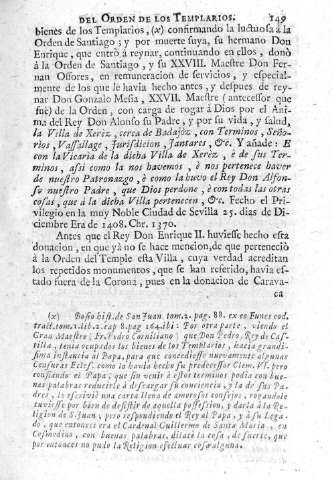 DEL ORDEN DE LOS TEMPLARIOS. 149
bienes de los Templarios, (x) confirmando la luctuosa à la
Orden de Santiago; y por muerte suya, su hermano Don
Enrique, que entrò à reynar, continuando en ellos, donò
à la Orden de Santiago, y su XXVIII. Maestre Don Fer-
nan Ossores, en remuneracion de servicios, y especial-
mente de los que le havia hecho antes, y despues de rey-
nar Don Gonzalo Mesia, XXVII. Maestre (antecessor que
fuè) de la Orden, con carga de rogar à Dios por el Ani-
ma del Rey Don Alonso su Padre, y por su vida, y salud,
la Villa de Xerèz, cerca de Badajòz, con Terminos, Seño-
rìos, Vassallage, Jurisdicion, Jantares, &c. Y añade: E
con la Vicaria de la dicha Villa de Xerèz, è de sus Ter-
minos, assi como la nos havemos, è nos pertenece haver
de nuestro Patronazgo, è como la huvo el Rey Don Alfon-
so nuestro Padre, que Dios perdone, è con todas las otras
cosas, que à la dicha Villa pertenecen, &c. Fecho el Pri-
vilegio en la muy Noble Ciudad de Sevilla 25. dias de Di-
ciembre Era de 1408. Chr. 1370.
Antes que el Rey Don Enrique II. huviesse hecho esta
donacion, en que yà no se hace mencion, de que perteneciò
à la Orden del Temple esta Villa, cuya verdad acreditan
los repetidos monumentos, que se han referido, havia es-
tado fuera de la Corona, pues en la donacion de Carava-
ca
(x) Bosio hist. de San Juan tom. 2. pag. 88. ex eo Funes cod.
tract. tom. 1. lib. 2. cap 8. pag 164. ibi: Por otra parte, viendo el
Gran Maestre; Fr. Pedro Corniliano; que Don Pedro, Rey de Cas-
tilla, tenia ocupados los bienes de los Templarios, hacia grandis-
sima instancia al Papa, para que concediesse nuevamente algunas
Censuras Ecles. como lo havia hecho su predecessor Clem. VI. pero
considerando el Papa; que sin venir à estos terminos podia con bue-
nas palabras reducirle à descargar su conciencia, y la de sus Pa-
dres, le escriviò una carta llena de amorosos consejos, rogandole
tuviesse por bien de desistir de aquella possession, y darla à la Re-
ligion de S. Juan; pero respondiendo el Rey al Papa, y à su Lega-
do, que entonces era el Cardenal Guillermo de Santa Maria, en
Cosmedino, con buenas palabras, dilatò la cosa, de suerte, que
por entonces no pudo la Religion efectuar cosa alguna.